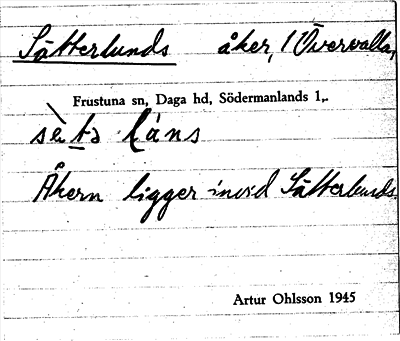 Sätterlunds åker, 1 Övervalla,
Frustuna sn, Daga hd, Södermanlands l.,
Åkern ligger invid Sätterlunds.
Artur Ohlsson 1945